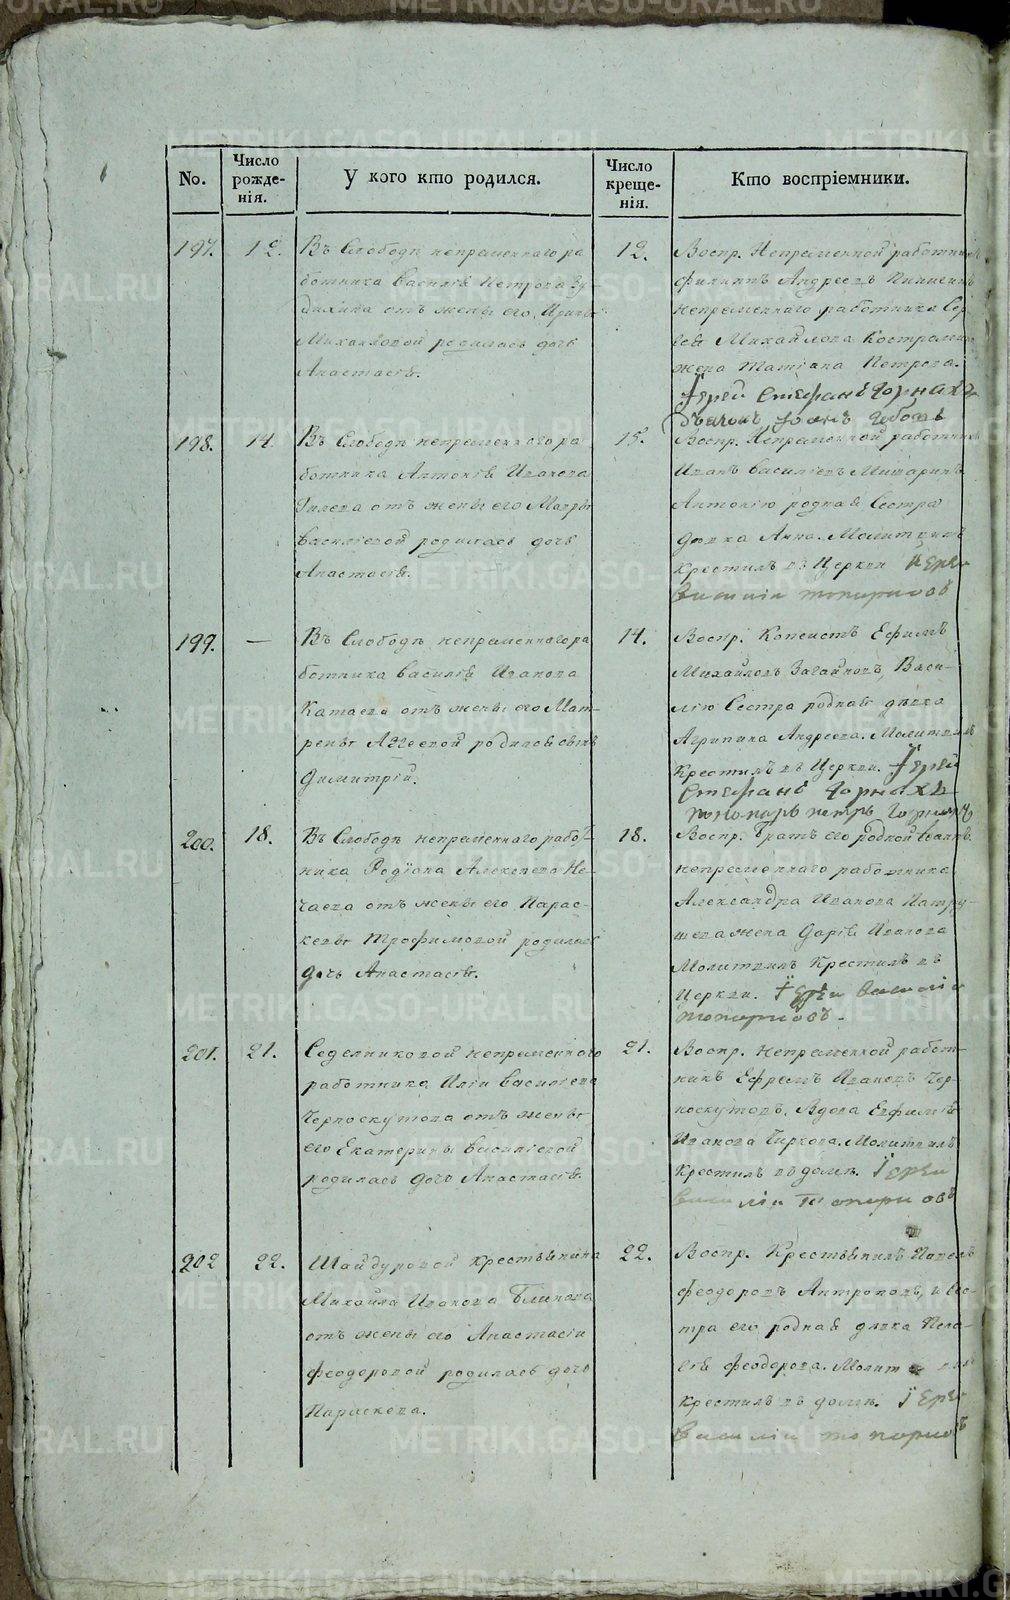 No.
Число рожде-
нія.
У кого кто родился.
Число креще-
нія.
Кто воспріемники.
197.
12.
Въ Слободѣ непременнаго ра
ботника Василія Петрова
отъ жены его Ирины
Михайловой родилась дочь
Анастасія.
12.
Воспр. Непременной работникъ
Филиппъ Андреевъ
непременнаго работника Сер
гея Михайлова
жена Татіана Петрова.
Іерей Стефанъ
198.
14.
Въ Слободѣ непременнаго ра
ботника Антонія Иванова
отъ жены его Мавры
Василіевой родилась дочь
Анастасія.
15.
Воспр. Непременной работникъ
Иванъ Василіевъ
Антонію родная Сестра
дѣвка Анна. Молитвилъ
крестилъ въ Церкви Іерей
Василіи Топорковъ
199.
—
Въ Слободѣ непременнаго ра
ботника Василія Иванова
Катаева отъ жены его Мат-
рены Аггеевой родился сынъ
Димитрій.
14.
Воспр. Копеистъ Ефимъ
Михайловъ Загайновъ, Васи-
лію Сестра родная дѣвка
Агрипина Андреева. Молитвилъ
Крестилъ въ Церкви. Іерей
Стефанъ
200.
18.
Въ Слободѣ непременнаго работ-
ника Родіона Алексеева Не-
чаева отъ жены его Парас-
кевы Трофимовой родилась
дочь Анастасія.
18.
Воспр. Братъ его родной Іоаннъ.
непременнаго работника
Александра Иванова Патру-
шева жена Дарія Иванова
Молитвилъ Крестилъ въ
Церкви. Іерѣи Василіи
Топорковъ.
201.
21.
Седелниковой непременнаго
работника Иліи Василіева
Черноскутова отъ жены
его Екатерины Василіевой
родилась дочь Анастасія.
21.
Воспр. Непременной работ-
никъ Ефремъ Ивановъ Чер-
носкутовъ. Вдова Евфимія
Иванова Чиркова. Молитвилъ
Крестилъ въ домѣ. Іерѣи
Василіи Топорковъ
202
22.
Шайдуровой крестьянина
Михайла Иванова Блинова
отъ жены его Анастасіи
Феодоровой родилась дочь
Параскева.
22.
Воспр. Крестьянинъ Павелъ
Феодоровъ Антроповъ, и Сес-
тра его родная дѣвка Пела-
гія Феодорова. Молитвилъ
крестилъ въ домѣ. Іерей
Василіи Топорковъ
METRIKI.GASO-URAL.RU